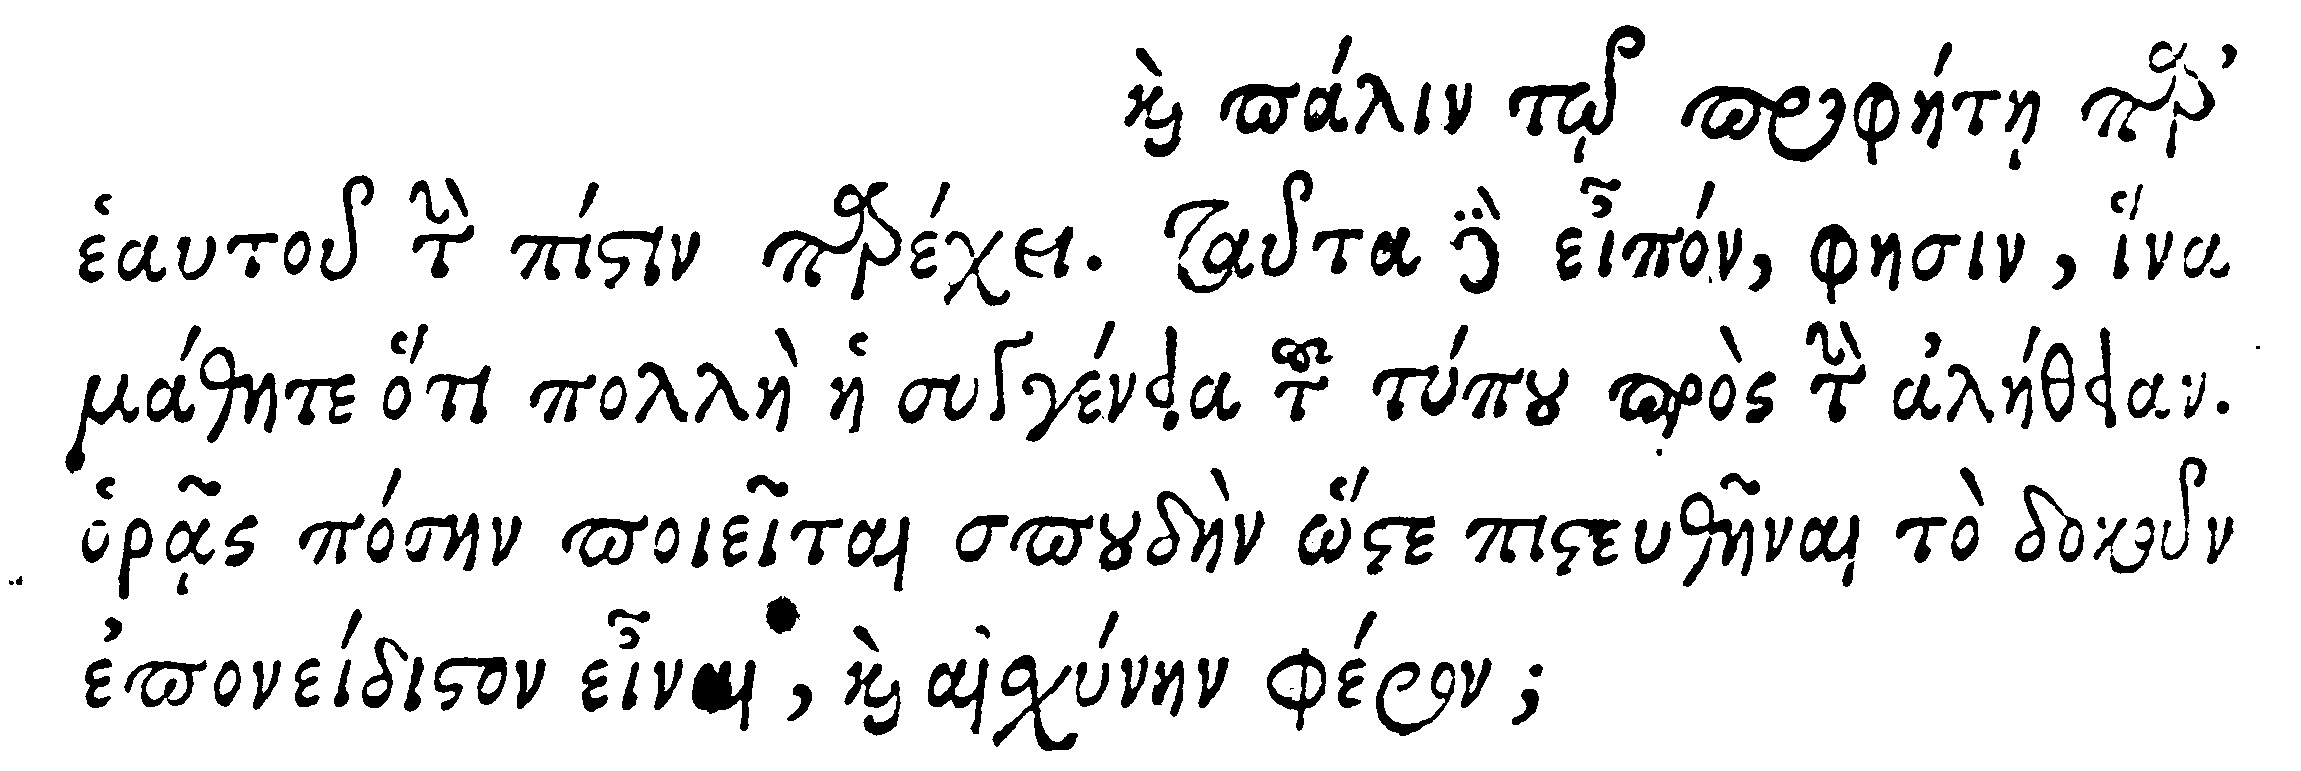 καὶ πάλιν τῷ προφήτῃ παρ᾽
ἑαυτοῦ τὴν πίστιν παρέχει. Ταῦτα δὲ εἶπόν, φησιν, ἵνα
μάθητε ὅτι πολλὴ ἡ συγγένεια τοῦ τύπου πρὸς τὴν ἀλήθειαν.
ὁρᾷς πόσην ποιεῖται σπουδὴν ὥστε πιστευθῆναι τὸ δοκοῦν
ἐπονείδιστον εἶναι, καὶ αἰσχύνην φέρον;